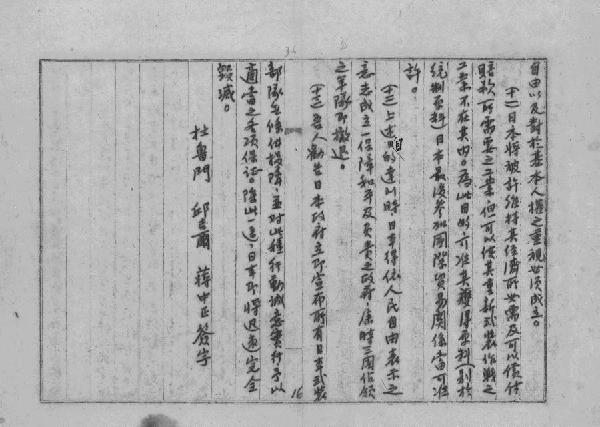 自由以及對於基本人權之重視必須成立。
(十一)日本將被許維持其經濟所必需及可以償付
賠款所需要之工業,但可以使其重新武裝作戰之
工業不在其內。為此目的,可准其獲得原料(別於
統制原料)日本最後參加國際貿易關係當可准
許。
(十二)上述目的達到時日本得依人民自由表示之
意志成立一保障和平及負責之政府,屆時三國佔領
之軍隊即撤退。
(十三)吾人勸告日本政府立即宣布所有日本武裝
部隊無條件投降,並對此種行動誠意實行予以
適當之各項保證。除此一途,日本即將迅速完全
毀滅。
杜魯門 邱吉爾 蔣中正 簽字
16